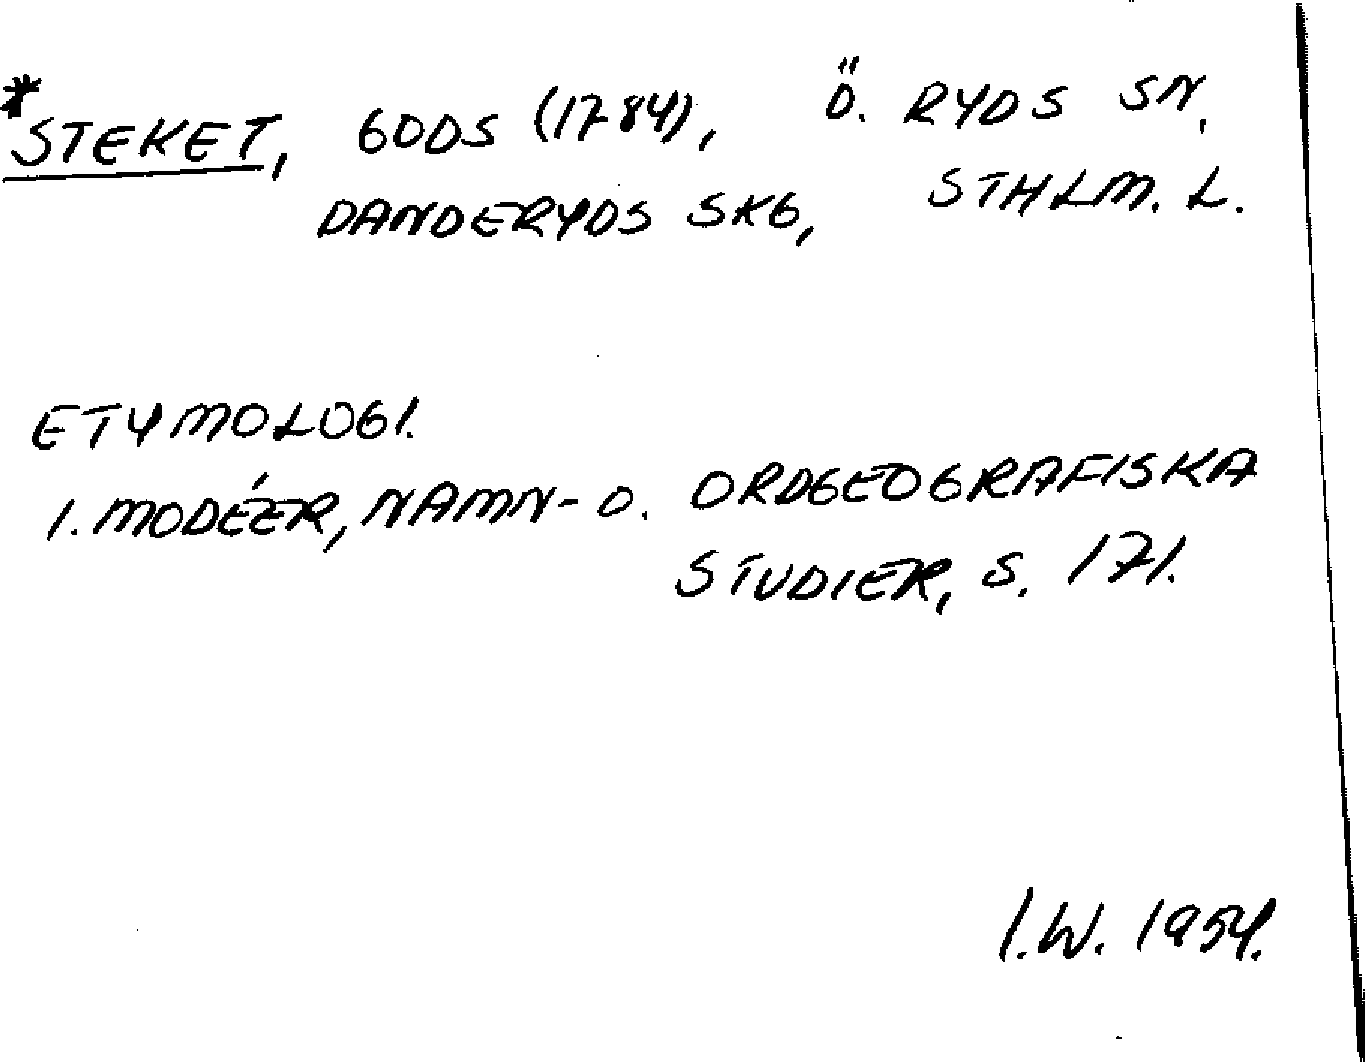 *STEKET, GODS (1784), Ö. RYDS SN,
DANDERYDS SKG, STHLM. L.
ETYMOLOGI.
I. MODÉER, NAMN- O. ORDGEOGRAFISKA
STUDIER, S. 171.
I.W. 1954.